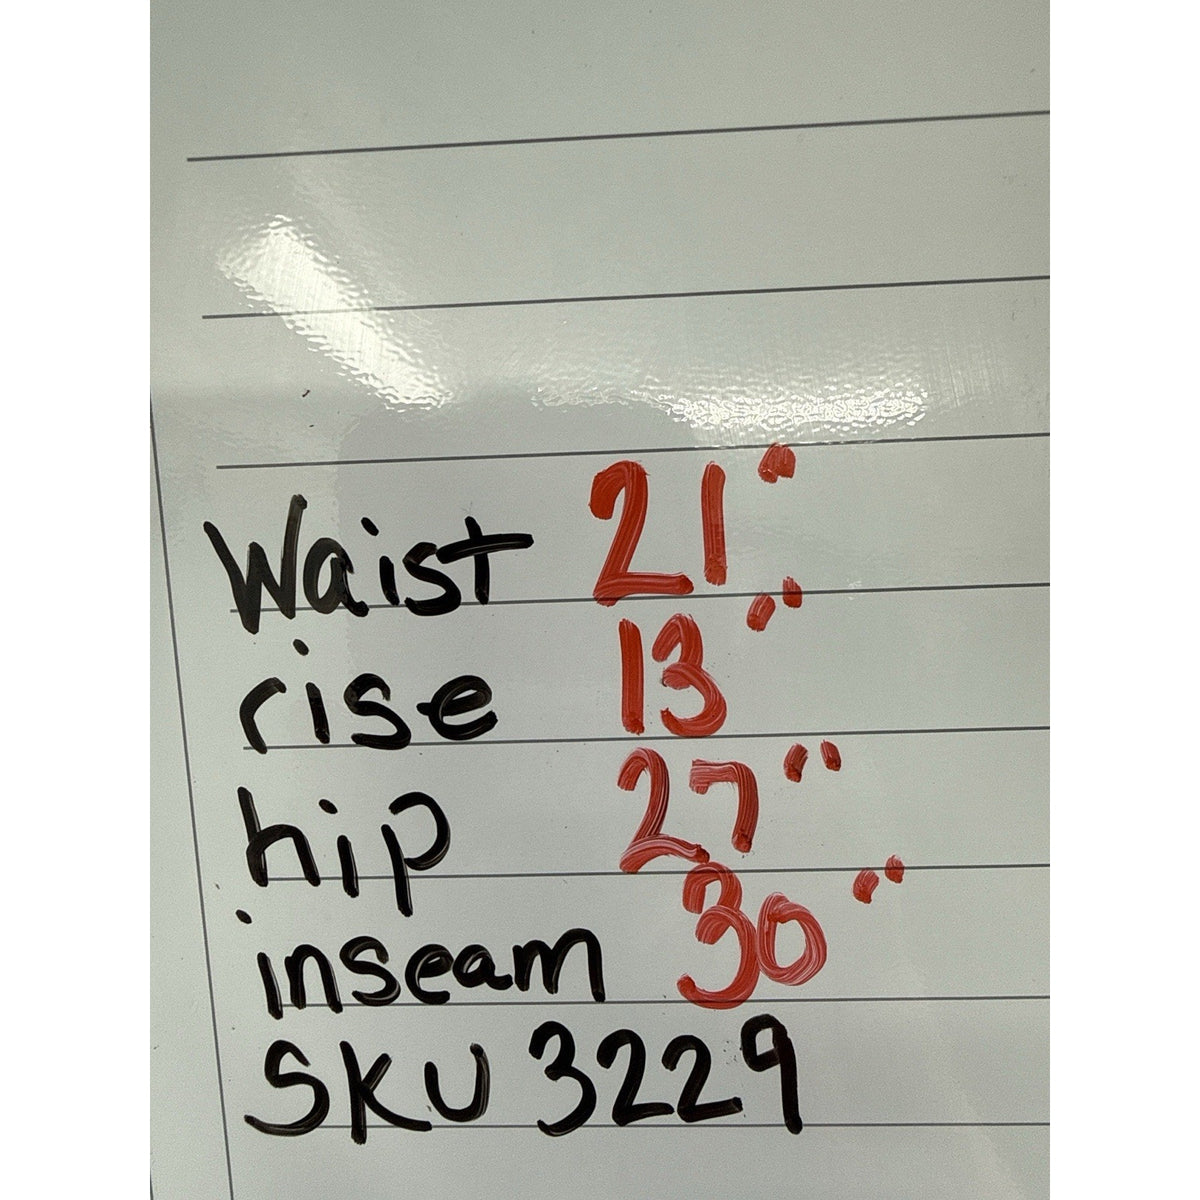 Waist 21"
rise 13"
hip 27"
inseam 30"
SKU 3229